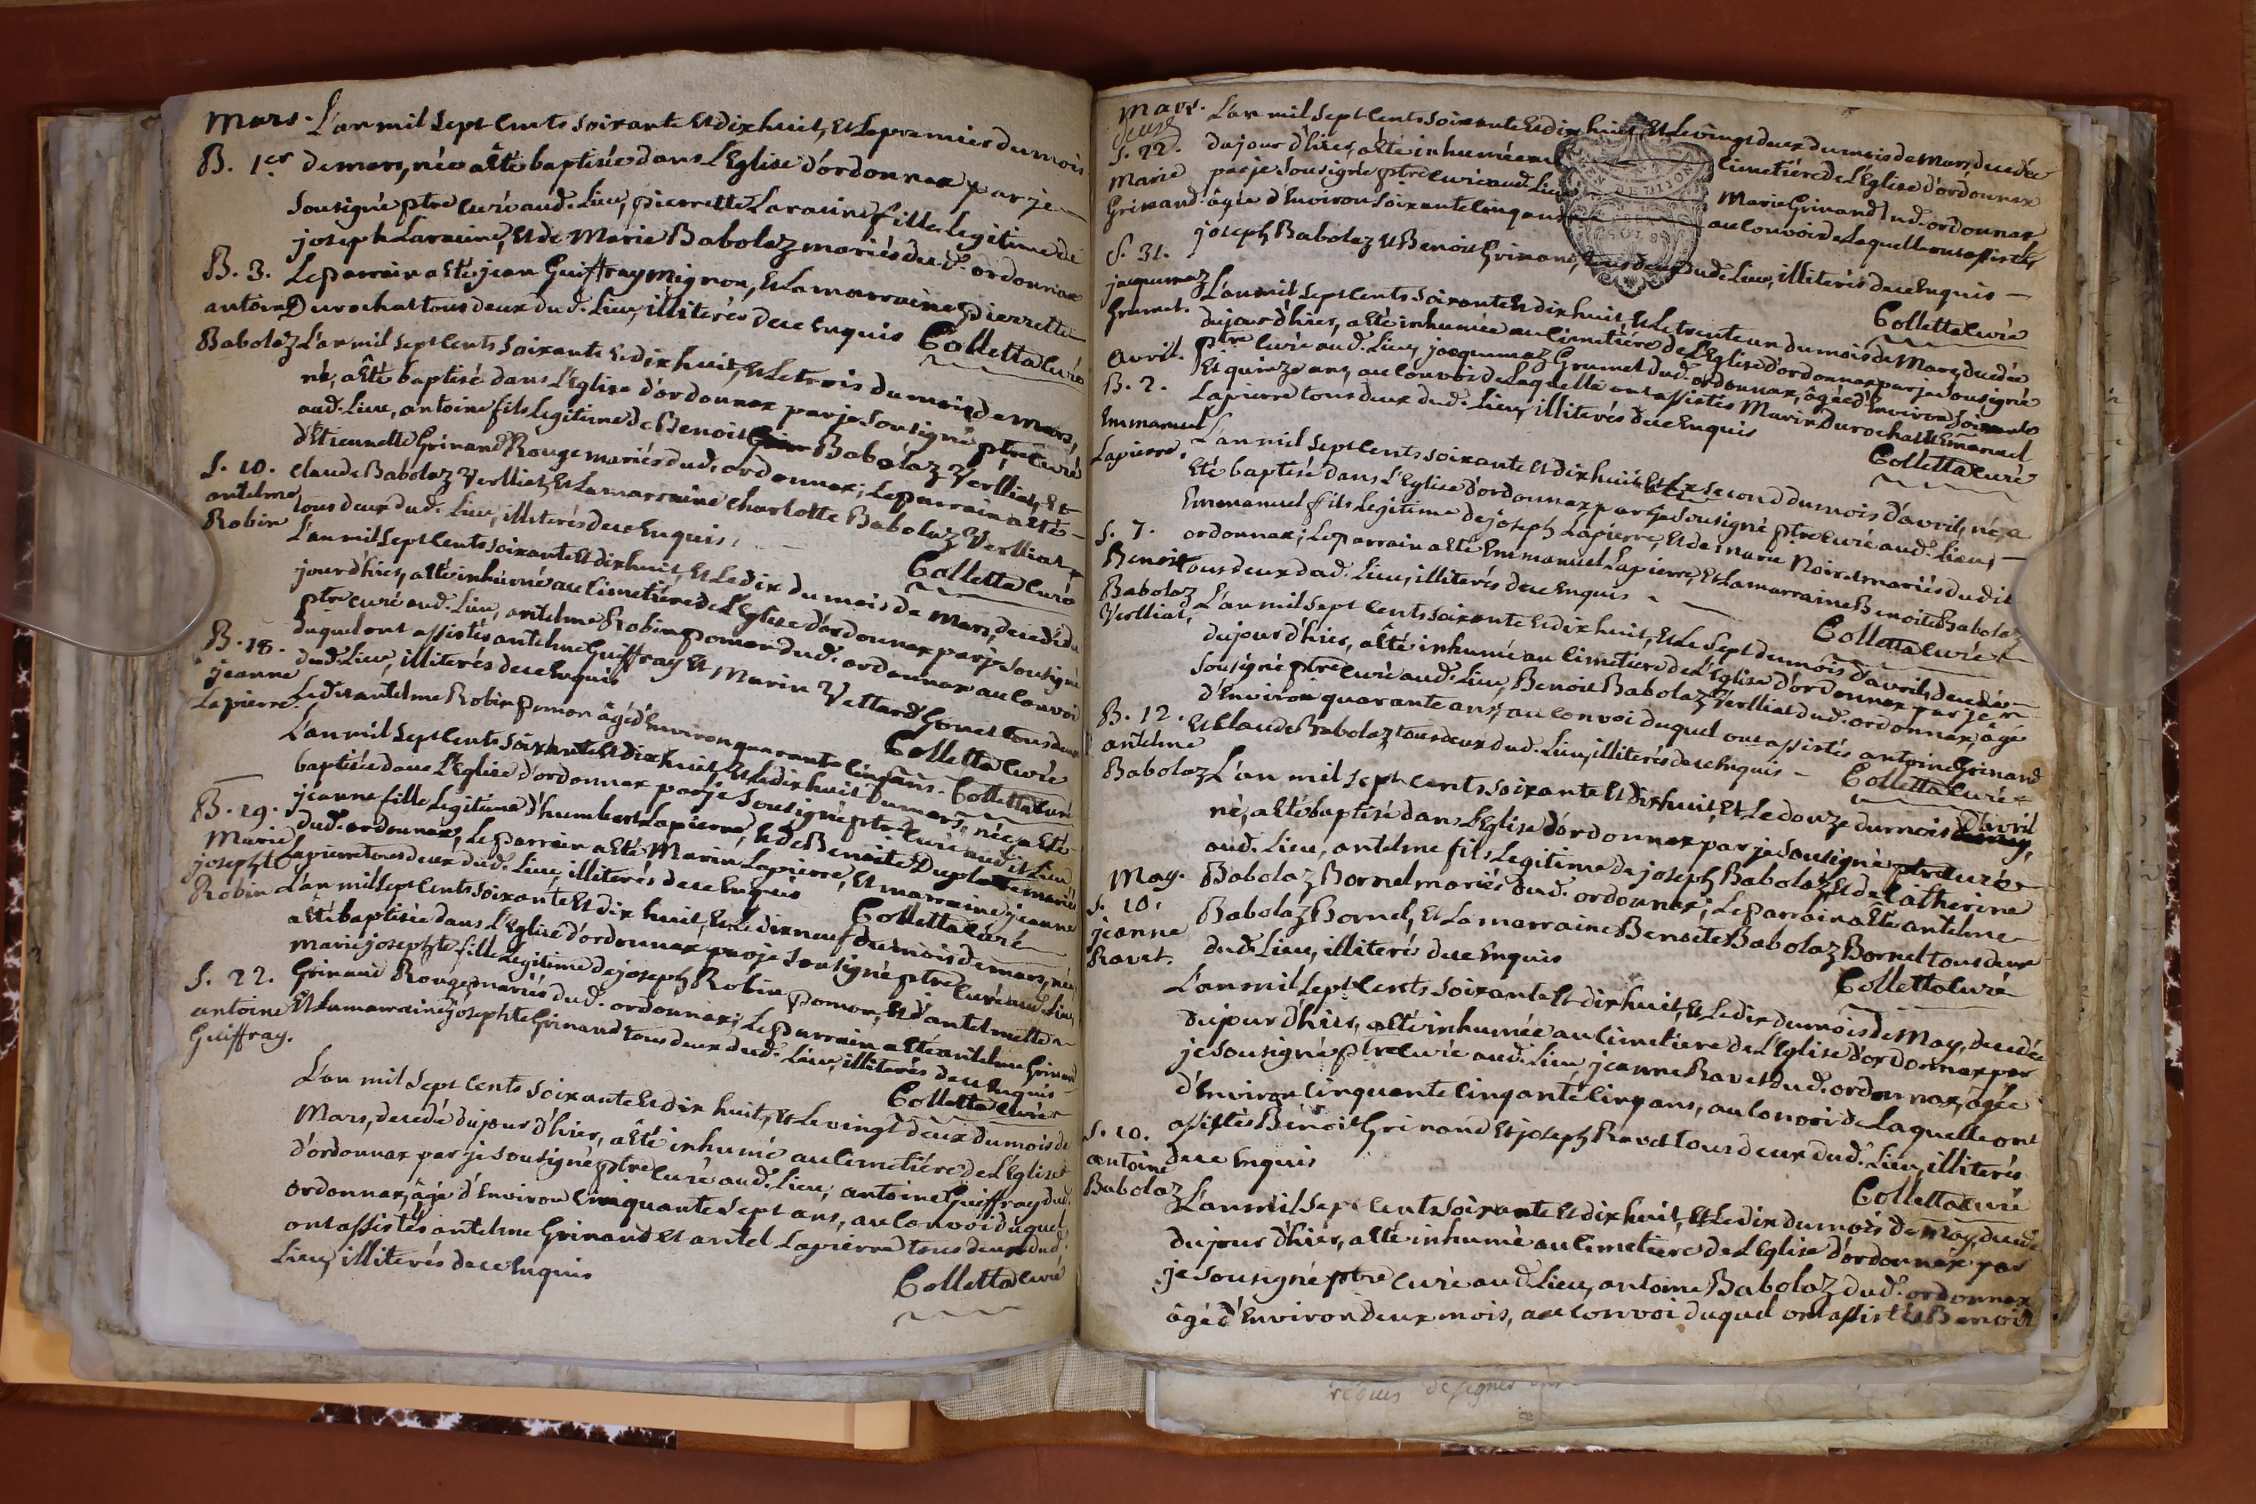 Mars. L'an mil sept cents soixante et dix huit, et le premier du mois
B. 1er de mars, née a êté baptisée dans l'Eglise d'ordonnax par je
sousigné ptre curé aud. Lieu, pierrette Laracine fille legitime de
joseph Laracine, et de Marie Babolaz mariés dud. ordonnax
B. 3. Le parrain a êté jean Guiffray mignon, et la marraine pierrette
antoine Durochat tous deux dud. Lieu, illiterés de ce Enquis Colletta Curé
Babolaz L'an mil sept cents soixante et dix huit, et le trois du mois de mars,
né, a êté baptisé dans l'Eglise d'ordonnax par je sousigné ptre curé
aud. Lieu, antoine fils legitime de Benoit Babolaz Verlliat, et
d'Etiennette Grinand Rouge mariés dud. ordonnax; Le parrain a êté
S. 10. claude Babolaz Verlliat, et la marraine charlotte Babolaz Verlliat
antelme tous deux dud. Lieu, illiterés de ce Enquis.
Robin Colletta Curé
L'an mil sept cents soixante et dix huit, et le dix du mois de mars, decedé du
jour d'hier, a êté inhumé au Cimetière de l'Eglise d'ordonnax par je sousigné
ptre curé aud. Lieu, antelme Robin pomon dud. ordonnax au convoi
B. 18. duquel ont assistés antelme Guiffray et Marin Vettard Gonet tous deux
jeanne dud. Lieu, illiterés de ce Enquis Colletta Curé
Lapierre. Ledit antelme Robin pomon âgé d'Environ quarante cinq ans. Colletta Curé
L'an mil sept cents soixante et dix huit, et le dix huit du mars, née, a êté
baptisée dans l'Eglise d'ordonnax par je sousigné ptre curé audit Lieu
jeanne fille legitime d'humbert Lapierre, et de Benoite mariés
B. 19. dud. ordonnax, Le parrain a êté Marin Lapierre, et marraine jeanne
Marie Lapierre tous deux dud. Lieu, illiterés de ce Enquis
josephte Colletta Curé
Robin L'an mil sept cents soixante et dix huit, et le dix neuf du mois de mars, née
a êté baptisée dans l'Eglise d'ordonnax par je sousigné ptre curé aud. Lieu,
Marie josephte fille legitime de joseph Robin pomon, et d'antelmette
S. 22. Grinand Rouge mariés dud. ordonnax; Le parrain a êté antelme Grinand
antoine et la marraine josephte Grinand tous deux dud. Lieu, illiterés de ce Enquis
Guiffray. Colletta Curé
L'an mil sept cents soixante et dix huit, et le vingt deux du mois de
Mars, decedé du jour d'hier, a êté inhumé au Cimetière de l'Eglise
d'ordonnax par je sousigné ptre curé aud. Lieu, antoine Guiffray dud.
ordonnax, âgé d'Environ cinquante sept ans, au convoi duquel
ont assistés antelme Grinand et antel Lapierre tous deux dud.
Lieu, illiterés de ce Enquis
Colletta Curé
Mars. L'an mil sept cents soixante et dix huit, et le vingt deux du mois de Mars, decedée
S. 22. du jour d'hier, a êté inhumée au Cimetière de l'Eglise d'ordonnax
Marie par je sousigné ptre curé aud. Lieu Marie Grinand dud. ordonnax
Grinand. âgée d'Environ soixante cinq ans au convoi de Laquelle ont assistés
joseph Babolaz et Benoit Grinand, tous deux dud. Lieu, illiterés de ce Enquis
S. 31. Colletta Curé
jaquemaz L'an mil sept cents soixante et dix huit, et le trente un du mois de Mars, decedée
Grumet. du jour d'hier, a êté inhumée au Cimetière de l'Eglise d'ordonnax par je sousigné
ptre curé aud. Lieu, jaquemaz Grumet dud. ordonnax, âgée d'Environ soixante
avril. et quinze ans, au convoi de Laquelle ont assistés Marin Durochat et Emanuel
B. 2. Lapierre tous deux dud. Lieu, illiterés de ce Enquis
Emmanuel Colletta Curé
Lapierre. L'an mil sept cents soixante et dix huit, et le second du mois d'avril, né, a
êté baptisé dans l'Eglise d'ordonnax par je sousigné ptre curé aud. Lieu,
Emmanuel fils legitime de joseph Lapierre, et de Marie Noir mariés dudit
S. 7. ordonnax; Le parrain a êté Emmanuel Lapierre, et la marraine Benoite Babolaz
Benoit tous deux dud. Lieu, illiterés de ce Enquis
Babolaz Colletta Curé
Verlliat, L'an mil sept cents soixante et dix huit, et le sept du mois d'avril, decedé
du jour d'hier, a êté inhumé au Cimetière de l'Eglise d'ordonnax par je
sousigné ptre curé aud. Lieu, Benoit Babolaz Verlliat dud. ordonnax, âgé
d'Environ quarante ans, au convoi duquel ont assistés antoine Grinand
B. 12. et Claude Babolaz tous deux dud. Lieu, illiterés de ce Enquis Colletta Curé
antelme
Babolaz L'an mil sept cents soixante et dix huit, et le douze du mois d'avril
né, a êté baptisé dans l'Eglise d'ordonnax par je sousigné ptre curé
aud. Lieu, antelme fils legitime de joseph Babolaz, et de Catherine
May. Babolaz Bornel mariés dud. ordonnax; Le parrain a êté antelme
S. 10. Babolaz Bornel, et la marraine Benoite Babolaz Bornel tous deux
jeanne dud. Lieu, illiteré de ce Enquis
Ravet. Colletta Curé
L'an mil sept cents soixante et dix huit, et le dix du mois de May, decedée
du jour d'hier, a êté inhumée au Cimetière de l'Eglise d'ordonnax par
je sousigné ptre curé aud. Lieu, jeanne Ravet dud. ordonnax, âgée
d'Environ cinquante cinq ante cinq ans, au convoi de Laquelle ont
S. 10. assistés Benoit Grinand et joseph Ravet tous deux dud. Lieu, illiterés
antoine de ce Enquis
Babolaz Colletta Curé
L'an mil sept cents soixante et dix huit, et le dix du mois de may, decedé
du jour d'hier, a êté inhumé au Cimetière de l'Eglise d'ordonnax par
je sousigné ptre curé aud. Lieu, antoine Babolaz dud. ordonnax
âgé d'Environ deux mois, au convoi duquel ont assistés Benoit